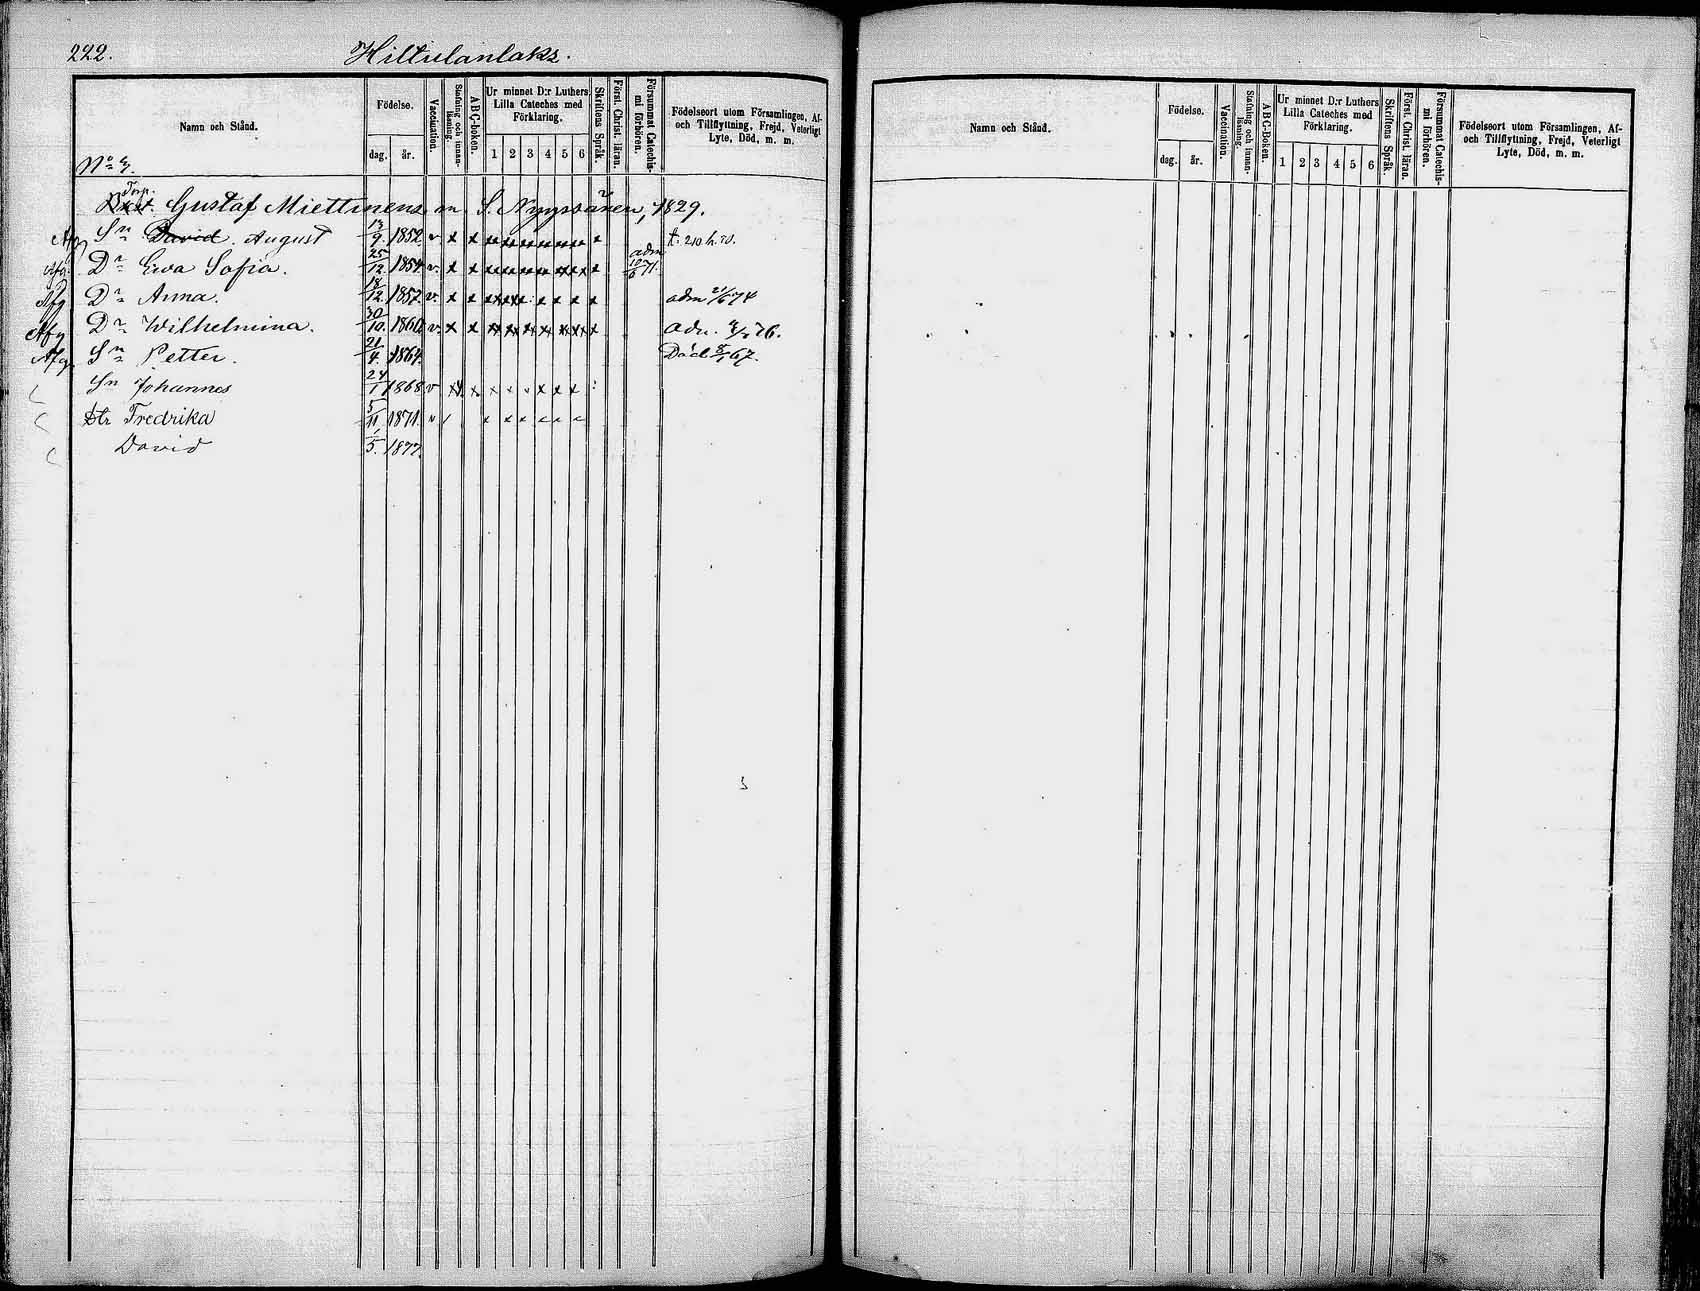 222. Hiltulanlaks.
Namn och Stånd.
Födelse.
dag. år.
Vaccination.
Stafning och innanläsning.
ABC-boken.
Ur minnet D:r Luthers Lilla Cateches med Förklaring.
1 2 3 4 5 6
Skriftens Språk.
Först. Christ. läran.
Försummat Catechismi förhören.
Födelseort utom Församlingen, Af- och Tillflyttning, Frejd, Veterligt Lyte, Död, m. m.
Torp.
Gustaf Miettinens m S. Nyyssönen, 1829.
Afg Sn David. August 13/9. 1852 v x x x x x x x x x
Afg. Dr Ewa Sofia. 25/12. 1854. v. x x x x x x x x x adm 10/6 71.
Afg Dr Anna. 18/12. 1857. v. x x x x x x x x x adm 21/6 74
Afg Dr Wilhelmina. 30/10. 1860. v. x x x x x x x x x adm. 76.
Afg. Sn Petter. 21/4. 1864. Död 67.
Sn Johannes 24/1 1868 v x x x x x x x x
Dtr Fredrika 5/11 1871.
David 1/5. 1877.
Namn och Stånd.
Födelse.
dag. år.
Vaccination.
Stafning och innanläsning.
ABC-Boken.
Ur minnet D:r Luthers Lilla Cateches med Förklaring.
1 2 3 4 5 6
Skriftens Språk
Först. Christ. läran.
Försummat Catechismi förhören.
Födelseort utom Församlingen, Af- och Tillflyttning, Frejd, Veterligt Lyte, Död, m. m.